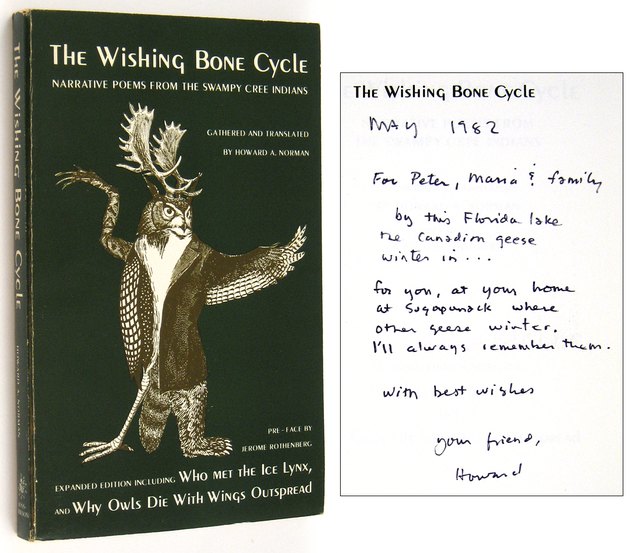 THE WISHING BONE CYCLE
HOWARD A. NORMAN
THE WISHING BONE CYCLE
NARRATIVE POEMS FROM THE SWAMPY CREE INDIANS
GATHERED AND TRANSLATED
BY HOWARD A. NORMAN
PRE-FACE BY
JEROME ROTHENBERG
EXPANDED EDITION INCLUDING WHO MET THE ICE LYNX,
AND WHY OWLS DIE WITH WINGS OUTSPREAD
THE WISHING BONE CYCLE
May 1982
For Peter, Maria & family
by this Florida lake
the Canadian geese
winter in...
for you, at your home
at Sagaponack where
other geese winter.
I'll always remember them.
with best wishes
your friend,
Howard